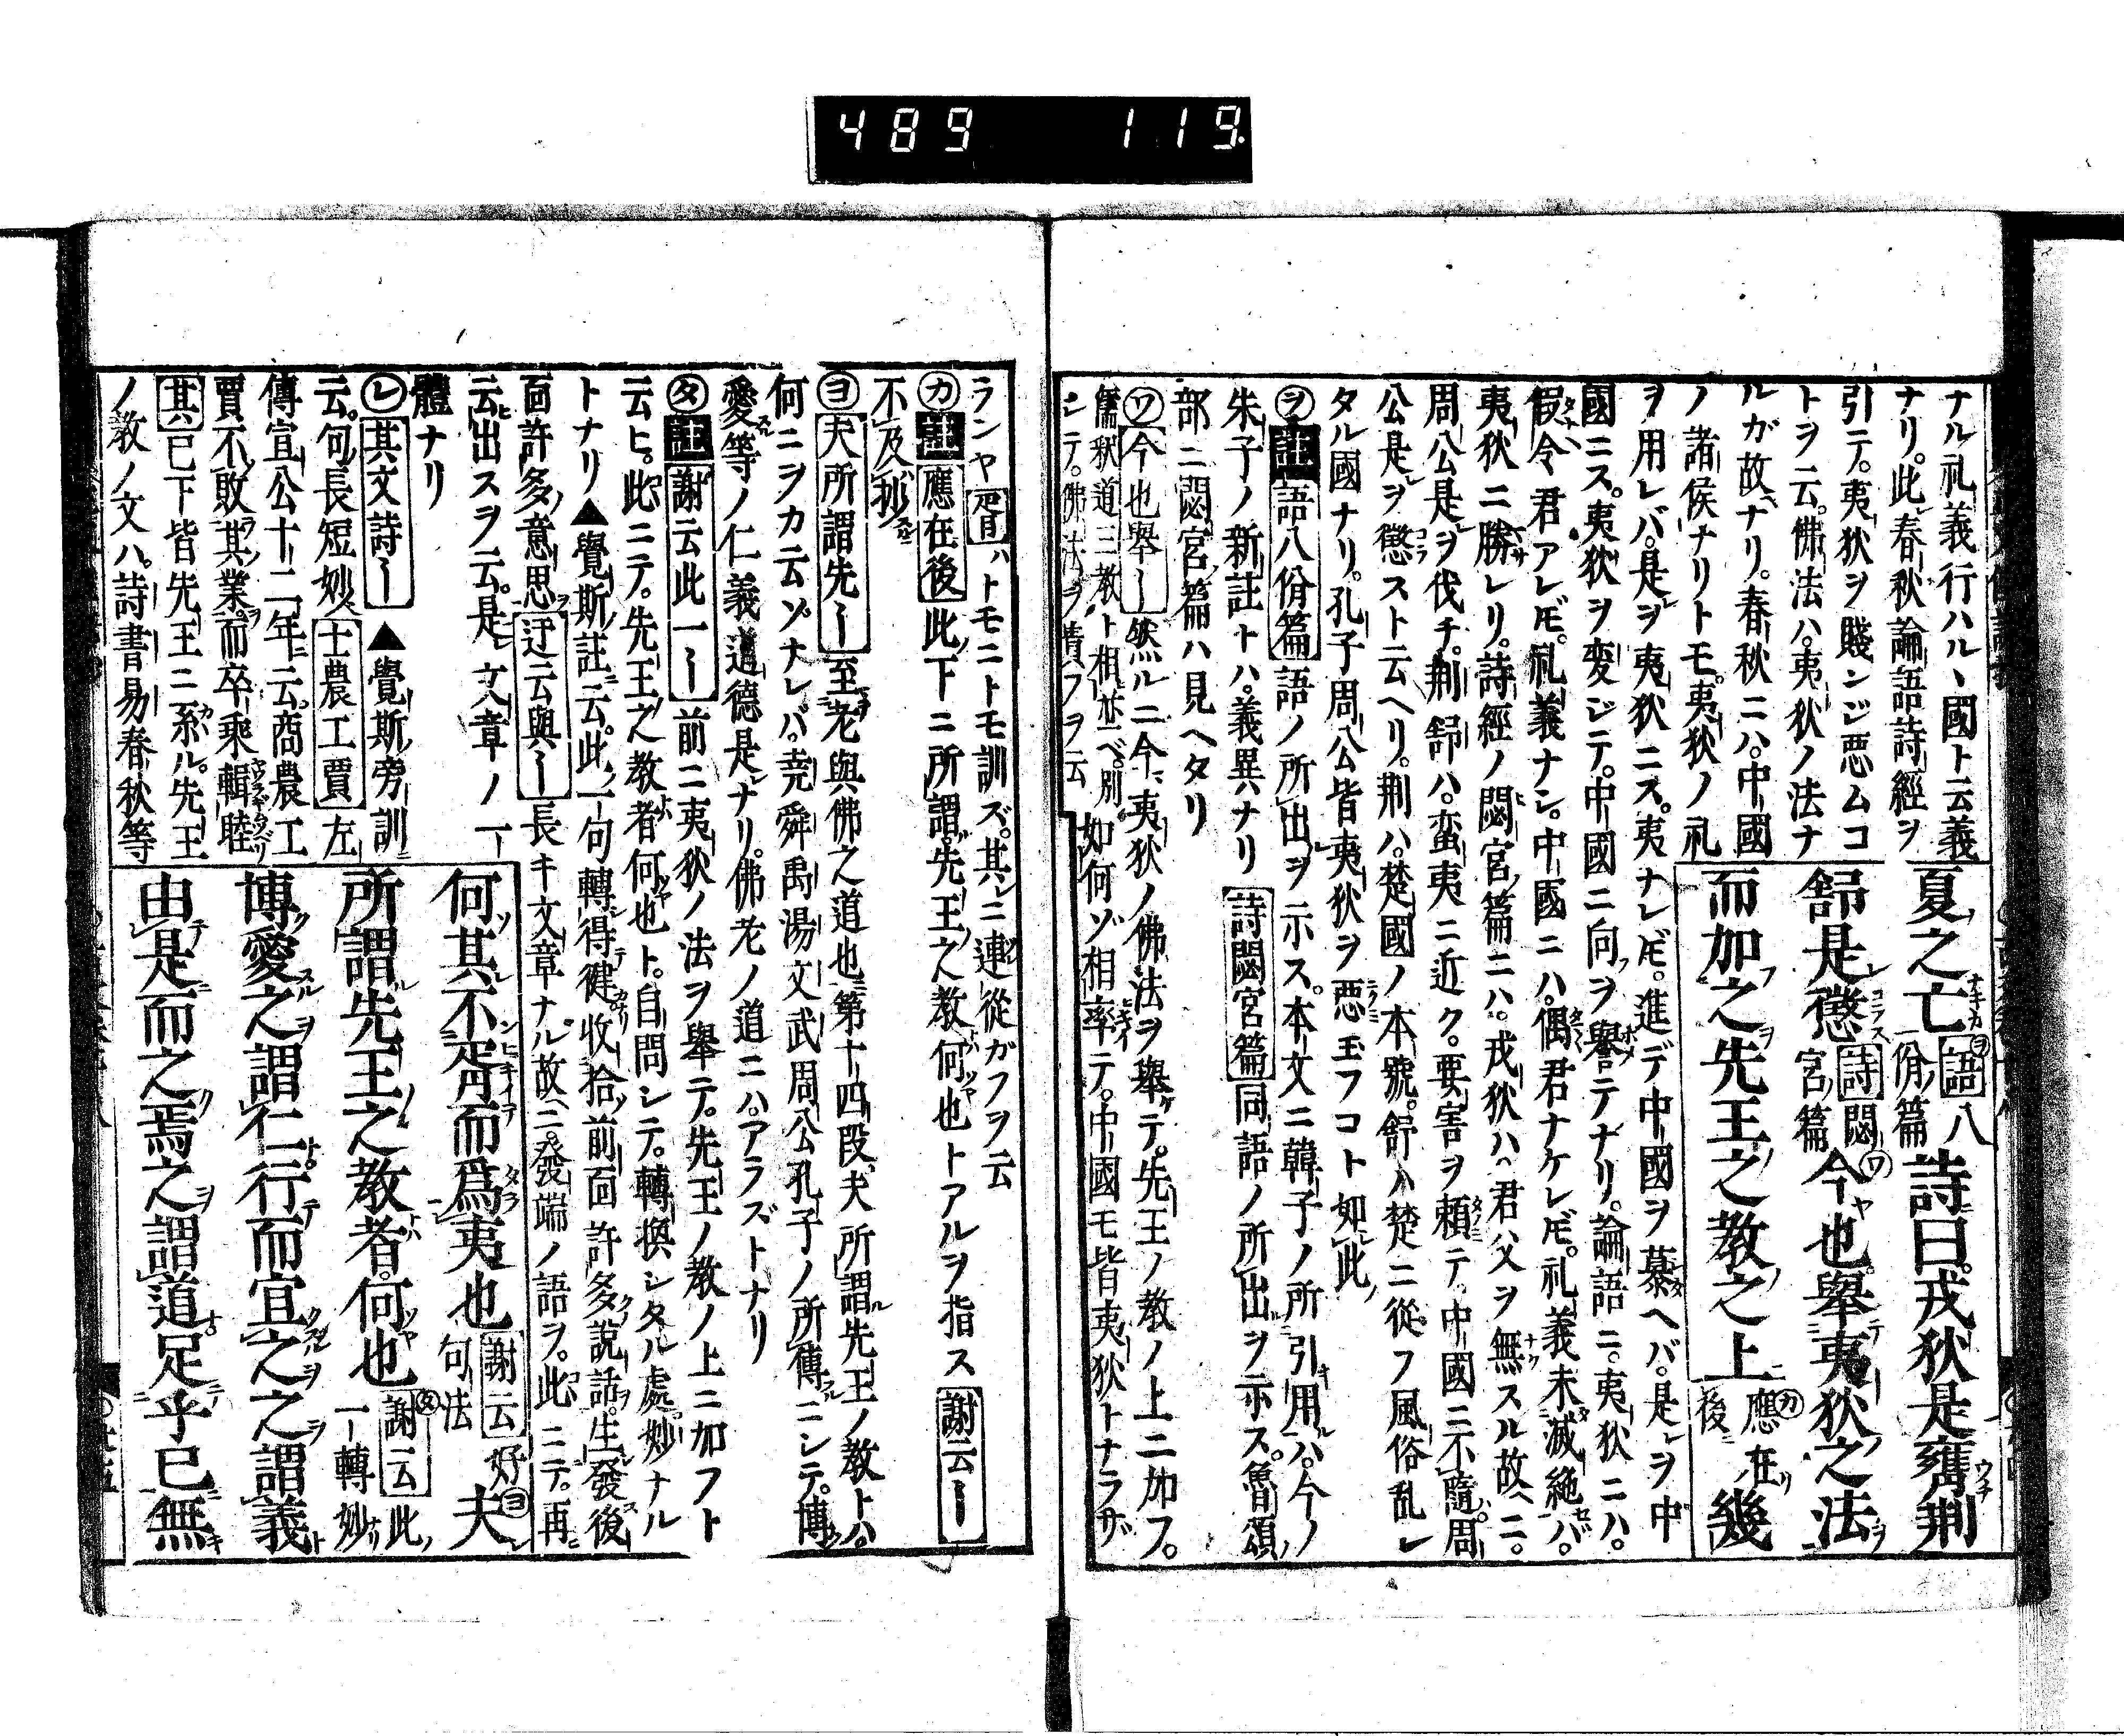 489 119
ナル礼義行ハルヽ國ト云義
ナリ。此春秋論語詩經ヲ
引テ。夷狄ヲ賤ンジ惡ムコ
トヲ云。佛法ハ。夷狄ノ法ナ
ルガ故ナリ。春秋ニハ。中國
ノ諸侯ナリトモ。夷狄ノ礼
夏之亡 語八佾篇 詩曰。戎狄是膺荆
舒是懲 詩閟宮篇 今也舉夷狄之法
而加之先王之教之上 應在後 幾
ヲ用レバ。是ヲ夷狄ニス。夷ナレ𪜈。進デ中國ヲ慕ヘバ。是ヲ中
國ニス。夷狄ヲ変ジテ。中國ニ向フヲ譽テナリ。論語ニ。夷狄ニハ。
假令君アレ𪜈。礼義ナシ。中國ニハ。偶君ナケレ𪜈。礼義未滅絶セバ。
夷狄ニ勝レリ。詩經ノ閟宮篇ニハ。戎狄ハ君父ヲ無スル故ヘニ。
周公是ヲ伐チ。荆舒ハ。蛮夷ニ近ク。要害ヲ頼テ。中國ニ不隨。周
公是ヲ懲スト云ヘリ。荆ハ。楚國ノ本號。舒ハ楚ニ從フ風俗乱レ
タル國ナリ。孔子周公皆夷狄ヲ惡玉フコト如此
ヲ註 語八佾篇 語ノ所出ヲ示ス。本文ニ韓子ノ所引用ハ。今ノ
朱子ノ新註トハ。義異ナリ 詩閟宮篇 同語ノ所出ヲ示ス。魯頌
部ニ閟宮篇ハ見ヘタリ
ワ 今也舉〡 然ルニ今夷狄ノ佛法ヲ舉テ。先王ノ教ノ上ニ加フ。
儒釈道三教ト相並ベ。別如何ゾ相率テ。中國モ皆夷狄トナラザ
シテ。佛法ヲ責フヲ云
ランヤ 胥 ハトモニトモ訓ズ。其ニ連從ガフヲ云
カ 註 應在後 此下ニ所謂。先王之教何也トアルヲ指ス 謝云〡
不及抄
ヨ 夫所謂先〡 至老與佛之道也第十四段夫所謂先王ノ教トハ。
何ニヲカ云ゾナレバ。尭舜禹湯文武周公孔子ノ所傳ニシテ。博
愛等ノ仁義道德是ナリ。佛老ノ道ニハ。アラズトナリ
タ 註 謝云此一〡 前ニ夷狄ノ法ヲ舉テ。先王ノ教ノ上ニ加フト
云ヒ。此ニテ。先王之教者何也ト。自問シテ。轉換シタル處妙ナル
トナリ▲覺斯註云。此一句轉得健。收拾前面許多說話。生發後
面許多意思 迂云與〡 長キ文章ナル故ニ。發端ノ語ヲ。此ニテ。再
云出スヲ云。是文章ノ一
體ナリ
レ 其文詩〡 ▲覺斯旁訓
云。句長短妙 士農工賈 左
傳宣公十二年云。商農工
賈不敗其業。而卒乘輯睦
其 已下皆先王ニ系ル。先王
ノ教ノ文ハ。詩書易春秋等
何其不胥而爲夷也 謝云好句法 夫
所謂先王之教者。何也 謝云此一轉妙
博愛之謂仁行而宜之之謂義
由是而之焉之謂道足乎已無